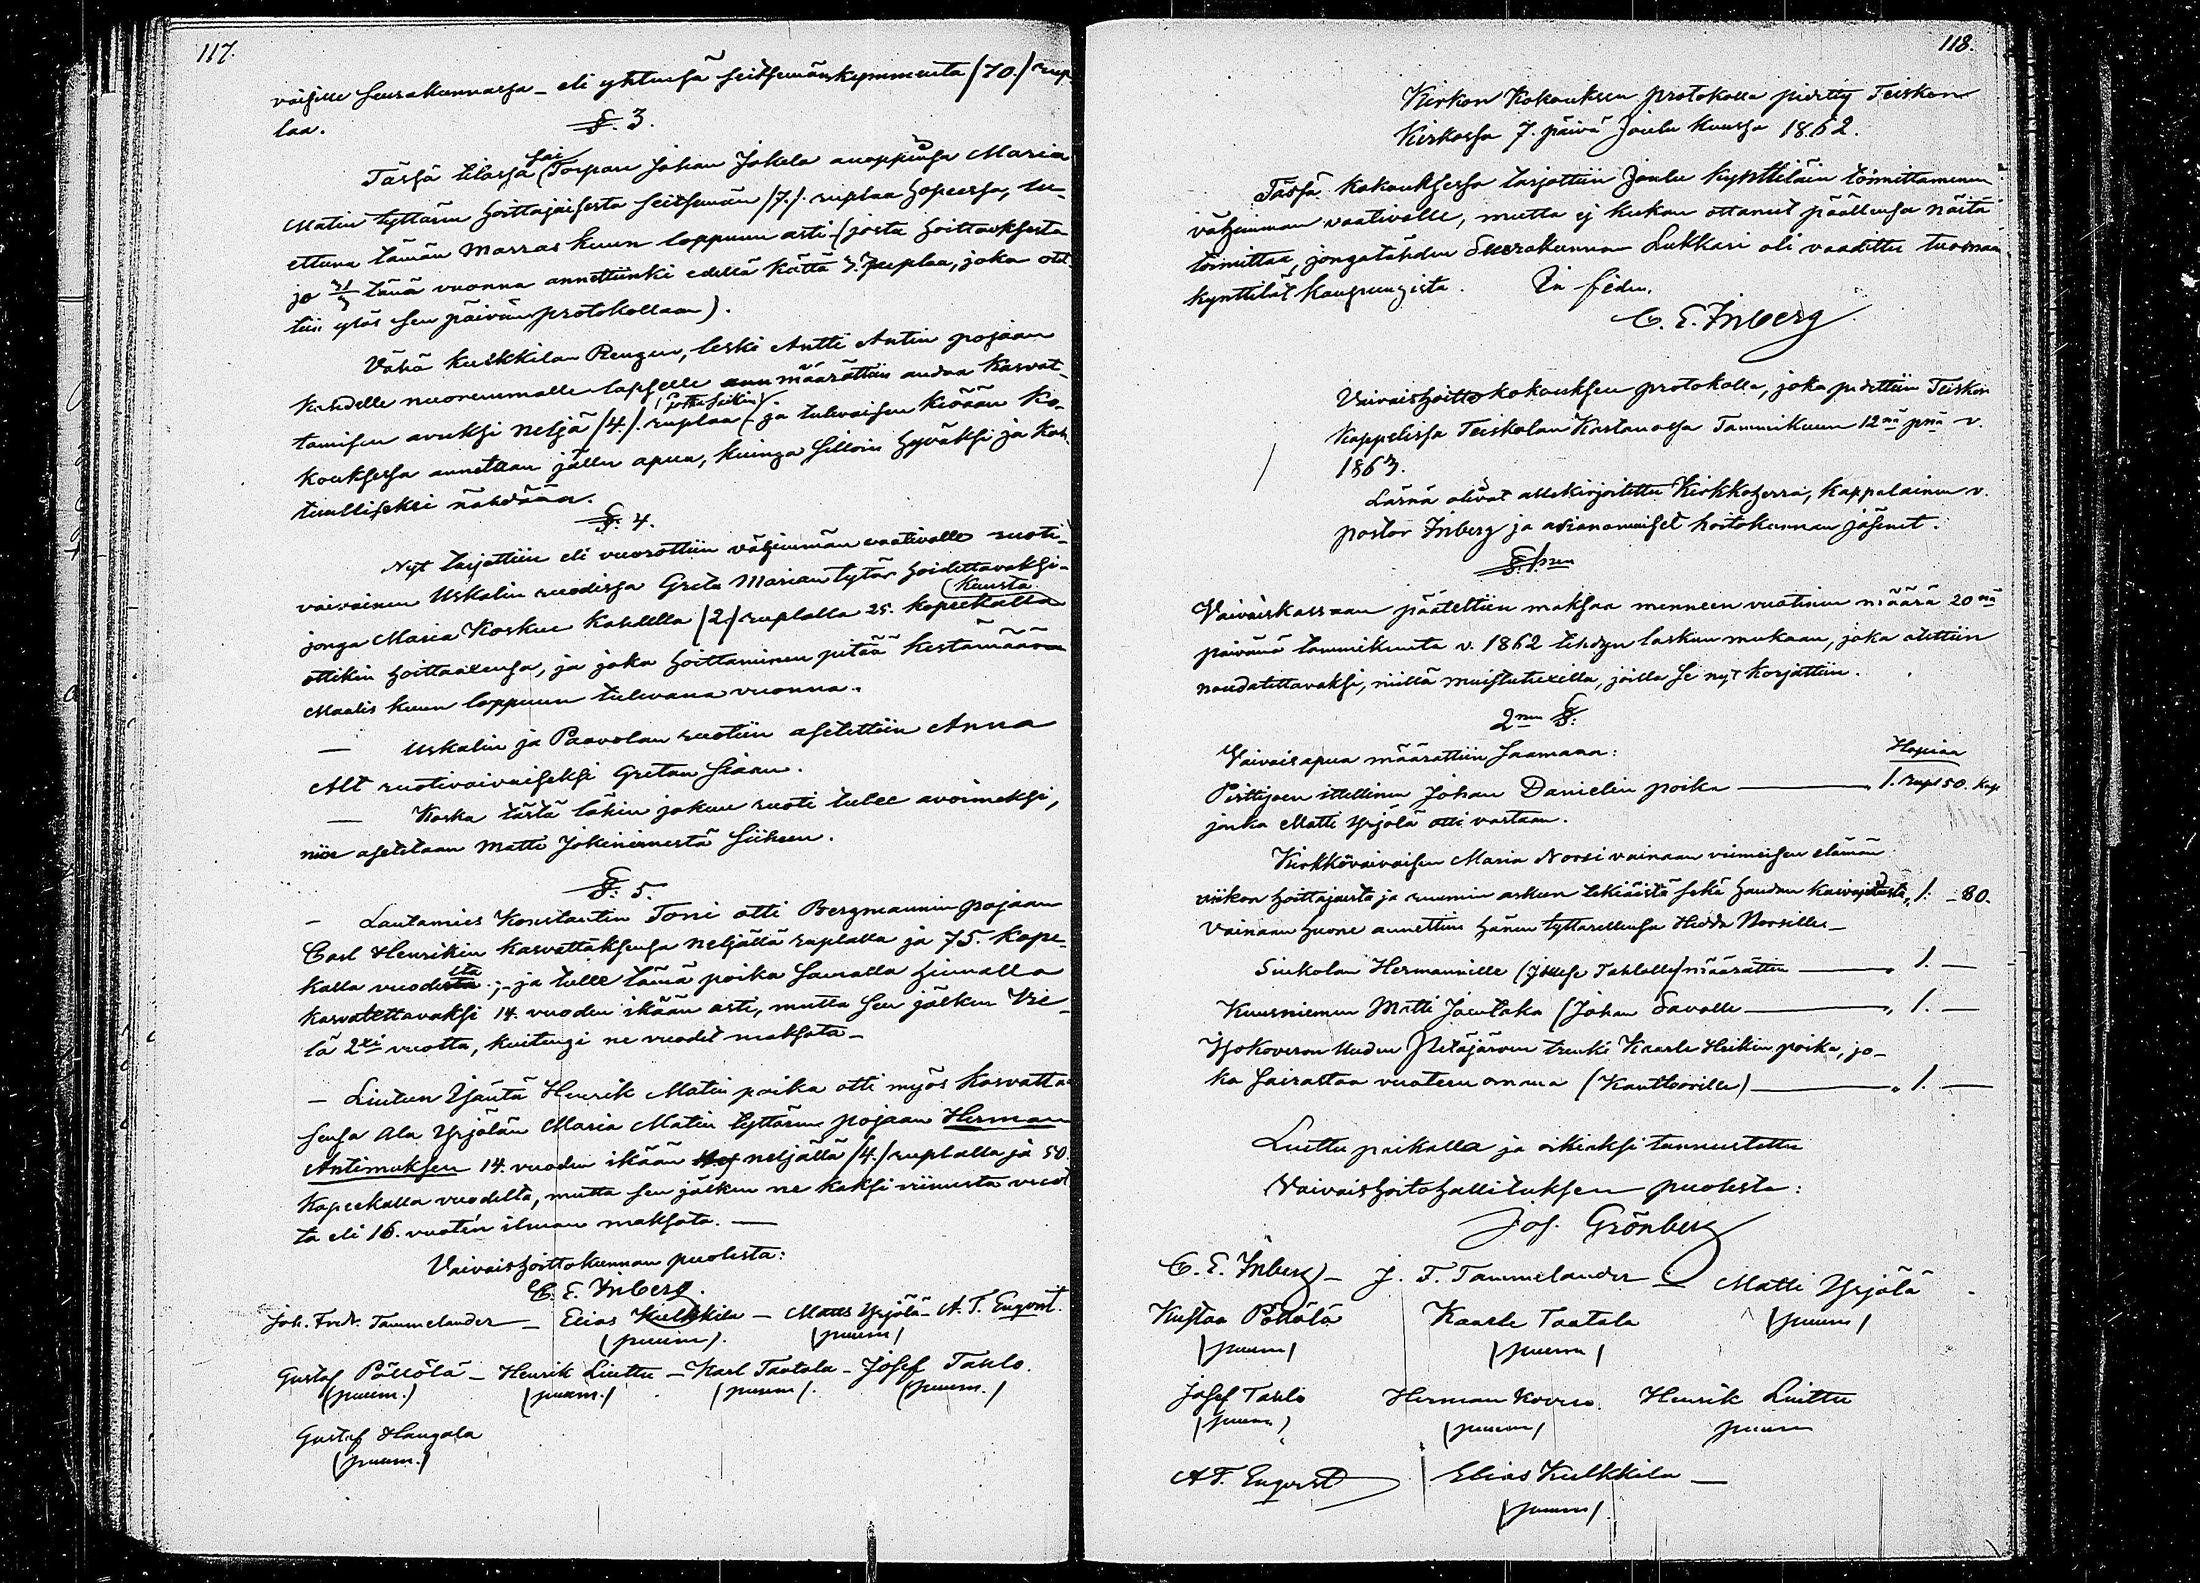 117.
väisille seurakunnassa – eli yhteensä seitsemänkymmentä /70./ rup-
laa.
§. 3.
Tässä tilassa sai Torpari Johan Jokela anoppinsa Maria
Matin tyttären hoittajaisesta seitsemän /7./ ruplaa hopeessa, lu-
ettuna tämän Marras kuun loppuun asti (josta hoittauksesta
jo tänä vuonna annettiinki edeltä kättä 3. ruplaa, joka otet-
tiin ylös sen päivän protokollaan).
Vähä kulkkilan Rengin, leski Antti Antin pojan
kahdelle nuoremmalle lapselle määrättiin andaa kasvat-
tamisen avuksi neljä /4./ ruplaa ja tulevaisen kevään Ko-
kouksessa annetaan jällen apua, kuinga silloin hyväksi ja koh-
tuulliseksi nähdään.
§. 4.
Nyt tarjottiin eli vuorottiin vähimmän vaativalle ruoti-
vaivainen Uskalin ruodissa Greta Marian tytär hoidettavaksi –
jonga Maria Koskue kahdella /2/ ruplalla 25. kopeekalla kuusta
ottikin hoittaaksensa, ja joka hoittaminen pitää kestämään
Maalis kuun loppuun tulevana vuonna.
— Uskalin ja Paavolan ruotiin asetettiin Anna
Alt ruotivaivaiseksi Gretan siaan.
— Koska tästä läkin jokuu ruoti tulee avoimeksi,
niin asetetaan Matti Jokiniemestä siihen.
§. 5.
– Lautamies Konstantin Toni otti Bergmannin pojan
Carl Henrikin kasvattaksensa neljällä ruplalla ja 75. kope-
kalla vuodelta ; – ja tulee tämä poika samalla hinnalla
kasvatettavaksi 14. vuoden ikään asti, mutta sen jälkeen vie-
lä 2ksi vuotta, kuitengi ne vuodet maksota –
– Liutun Isäntä Henrik Matin poika otti myös kasvattaa-
sensa Ala Yrjölän Maria Matin tyttären pojan Herman
Antinuksen 14. vuoden ikään neljällä /4./ ruplalla ja 50.
Kopeekalla vuodelta, mutta sen jälkeen ne kaksi viimestä vuot-
ta eli 16. vuoten ilman maksota. —
Vaivaishoittokunnan puolesta:
C. E. Inberg.
Joh. Fredr. Tammelander – Elias Kulkkila – Matts Yrjölä – A. F. Enqvist.
(puum). (puum)
Gustaf Pöllölä – Henrik Liuttu – Karl Taatala – Josef Tahlo.
(puum.) (puum.) (puum). (puum.)
Gustaf Haugala
(puum.)
118.
Kirkon Kokouksen protokolla pidetty Teiskon
Kirkossa 7. päivä Joulu kuussa 1862.
Tässä kokouksessa tarjottiin Joulu kynttiläin toimittaminen
vähimmän vaativalle, mutta ej kukan ottanut päällensä näitä
toimittaa, jongatähden Seurakunnan Lukkari oli vaadittu tuomaan
kynttilät kaupungista. In fidem.
C. E. Inberg
Vaivaishoitto kokouksen protokolla, joka pidettiin Teiskon
Kappelissa Teiskolan Kartanossa Tammikuun 12nä pnä v.
1863.
Läsnä olivat allekirjoitettu Kirkkoherra, kappalainen v.
pastor Inberg ja asianomaiset hoitokunnan jäsenet.
§. 1nen
Vaivaiskassaan päätettiin maksaa menneen vuotinen määrä 20nä
päivänä tammikuuta v. 1862 tehdyn laskun mukaan, joka otettiin
noudatettavaksi, niillä muistutuxilla, joilla se nyt korjattiin.
2nen §:
Vaivaisapua määrättiin saamaan: Hopiaa
Pirttijoen ittellinen Johan Danielin poika — 1. rupl 50. kop.
jonka Matti Yrjölä otti vastaan.
Kirkkovaivaisen Maria Norsi vainaan viimeisen elämän
viikon hoittajasta ja ruumin arkun tekiäistä sekä haudan kaivajasta „ 1. – 80.
Vainaan huone annettiin hänen tyttarellensa Hedda Norsille –
Sinkolan Hermannille (Josef Tahlolle) määrättiin — „ 1. —
Kuusniemen Matti Jaentaka (Johan Savolle — „ 1. —
Isokoveron Uuden Pitäjärven trenki Kaarle Heikin poika, jo-
ka sairastaa vuoteen omana (Kanttorille) — „ 1. —
Luettu paikalla ja oikeaksi tunnustettu
Vaivaishoitohallituksen puolesta:
Jos. Grönberg
C. E. Inberg – J. F. Tammelander – Matti Yrjölä
Kustaa Pöllölä Kaarle Taatala (puum)
(puum) (puum)
Josef Tahlo Herman Kovero. Henrik Liuttu
(puum) (puum) puum
A. F. Enqvist Elias Kulkkila —
(puum).